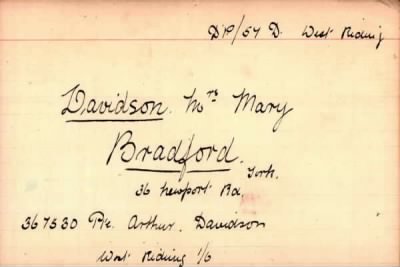 DP/57 D. West Riding
Davidson. Mrs Mary
Bradford.
York.
36 Newport Rd.
367530 Pte. Arthur. Davidson
West Riding 1/6